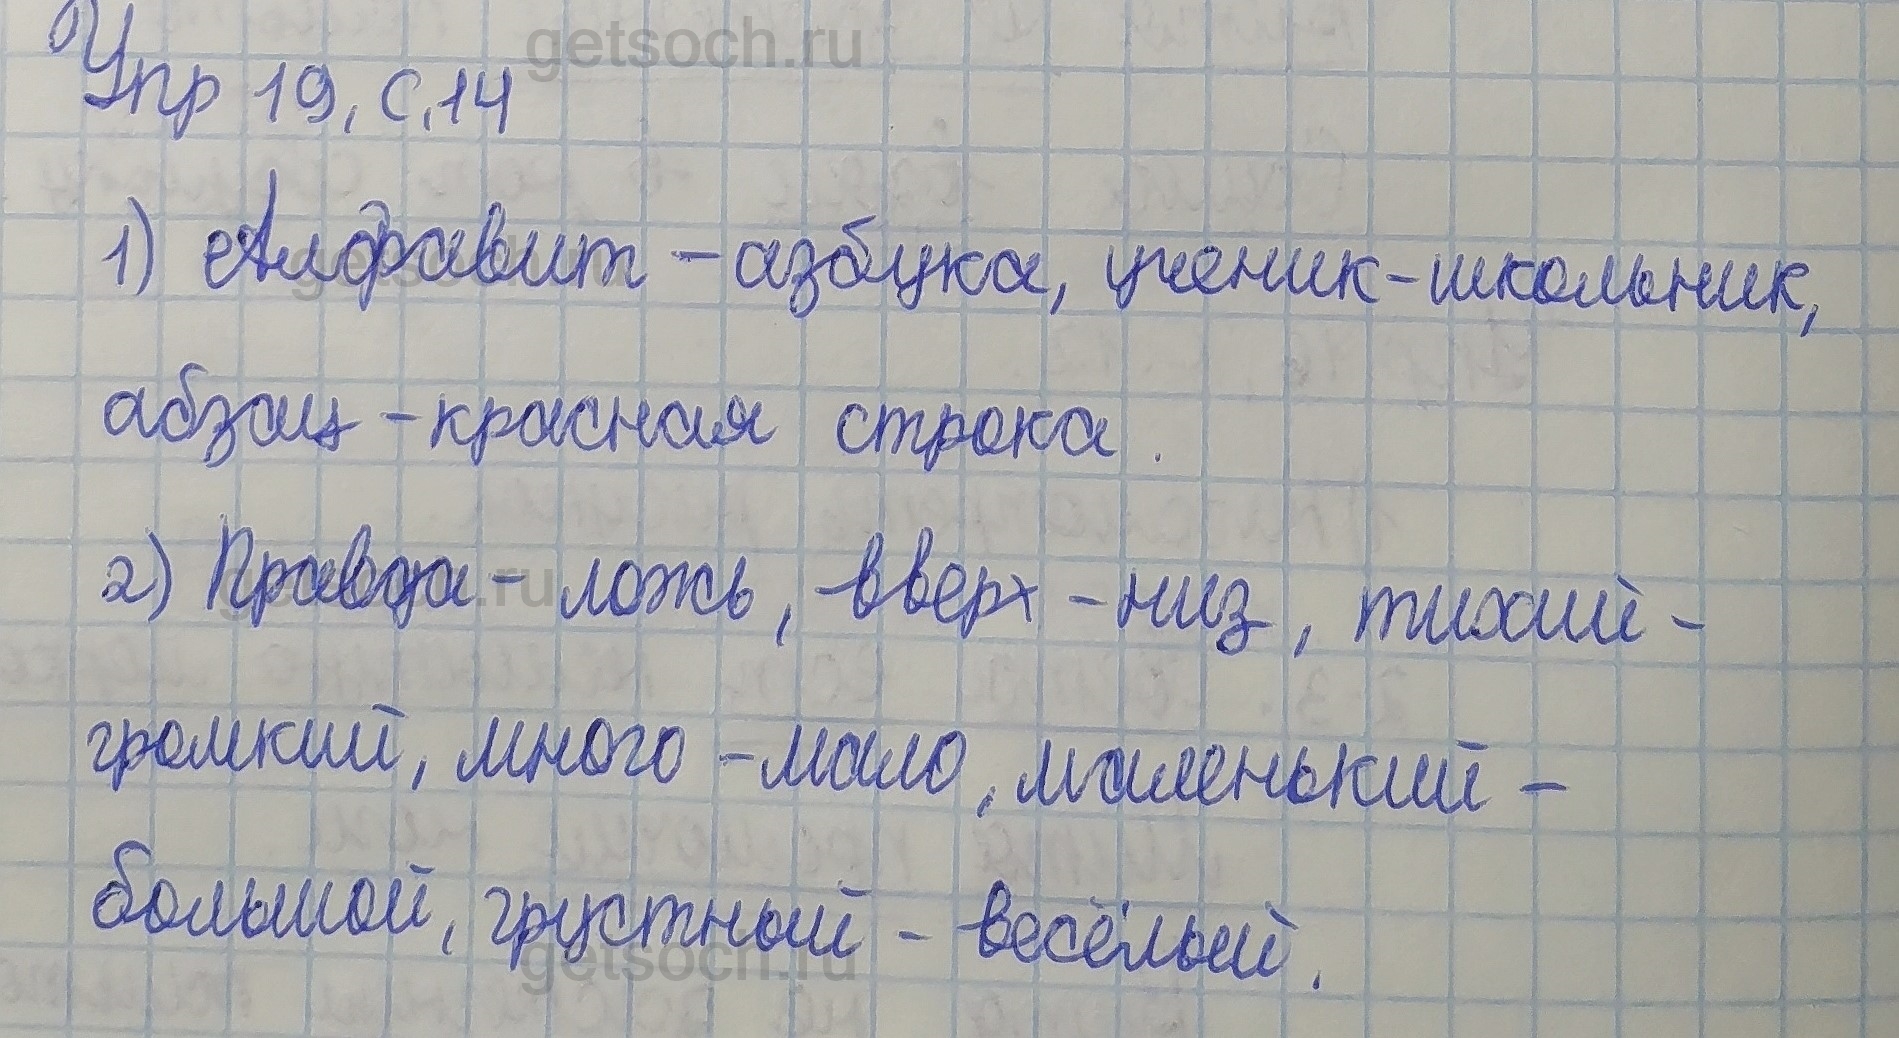 getsoch.ru
Упр 19, с, 14
1) Алфавит - азбука, ученик - школьник,
getsoch.ru
абзац - красная строка.
2) Правда - ложь, вверх - низ, тихий -
getsoch.ru
громкий, много - мало, маленький -
большой, грустный - весёлый.
getsoch.ru